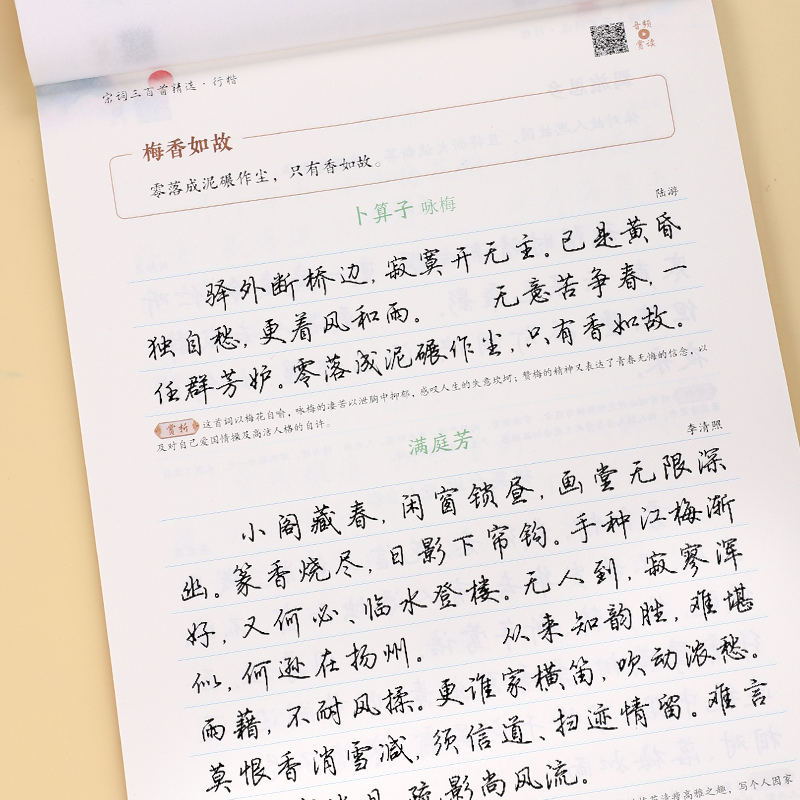 音频
赏读
宋词三百首精选·行楷
梅香如故
零落成泥碾作尘，只有香如故。
卜算子 咏梅
陆游
驿外断桥边，寂寞开无主。已是黄昏
独自愁，更着风和雨。 无意苦争春，一
任群芳妒。零落成泥碾作尘，只有香如故。
赏析 这首词以梅花自喻，咏梅的凄苦以泄胸中抑郁，感叹人生的失意坎坷；赞梅的精神又表达了青春无悔的信念，以
及对自己爱国情操及高洁人格的自许。
满庭芳
李清照
小阁藏春，闲窗锁昼，画堂无限深
幽。篆香烧尽，日影下帘钩。手种江梅渐
好，又何必、临水登楼。无人到，寂寥浑
似，何逊在扬州。 从来知韵胜，难堪
雨藉，不耐风揉。更谁家横笛，吹动浓愁。
莫恨香消雪减，须信道、扫迹情留。难言
疏影尚风流。
高雅之趣，写个人因家